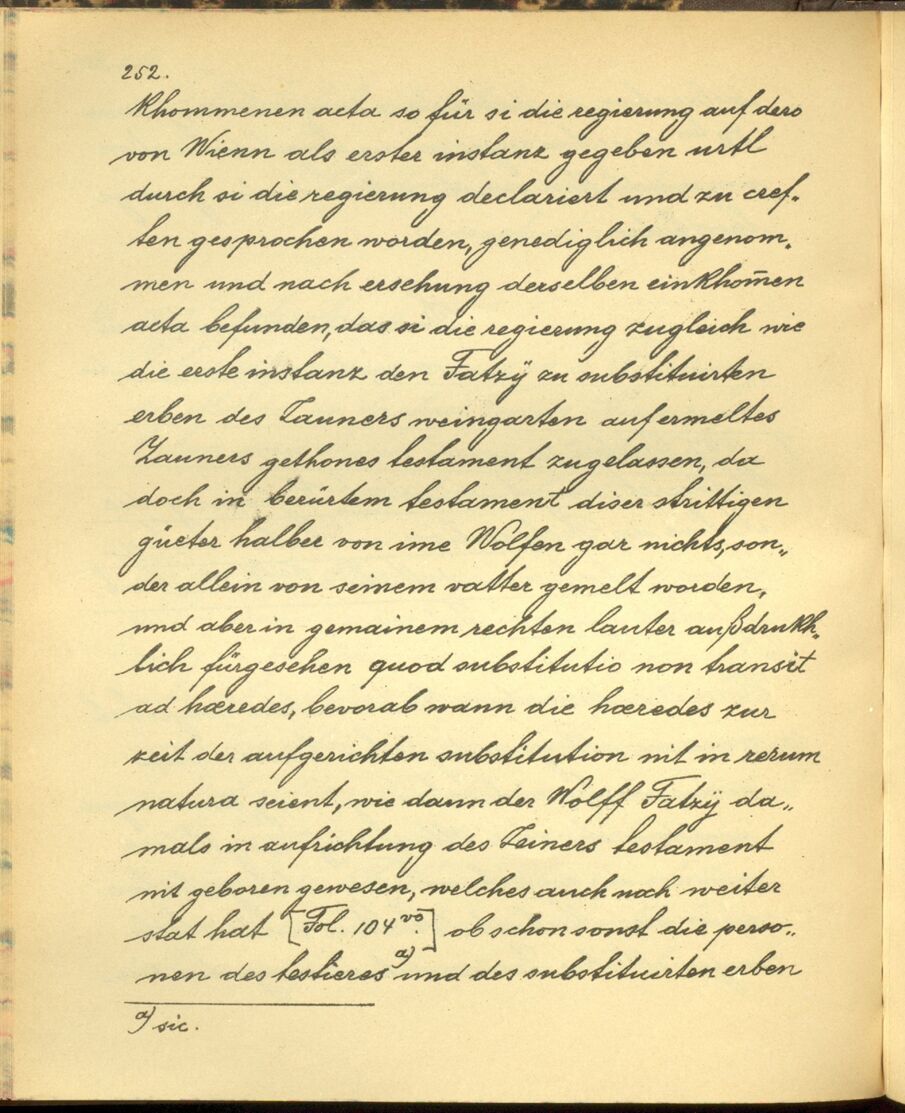 252.
khommenen acta so für si die regierung auf dero
von Wienn als erster instanz gegeben urtl
durch si die regierung declariert und zu cref-
ten gesprochen worden, genediglich angenom-
men und nach ersehung derselben einkhom̄en
acta befunden, das si die regierung zugleich wie
die erste instanz den Fatzÿ zu substituirten
erben des Zauners weingarten auf ermeltes
Zauners gethones testament zugelassen, da
doch in berürtem testament diser strittigen
güeter halber von ime Wolfen gar nichts, son„
der allein von seinem vatter gemelt worden,
und aber in gemainem rechten lauter außdrukh„
lich fürgesehen quod substitutio non transit
ad hæredes, bevorab wann die hæredes zur
zeit der aufgerichten substitution nit in rerum
natura seient, wie dann der Wolff Fatzÿ da„
mals in aufrichtung des Zeiners testament
nit geboren gewesen, welches auch noch weiter
stat hat [Fol. 104 vo.] ob schon sonst die perso„
nen des testieres a) und des substituirten erben
a) sic.